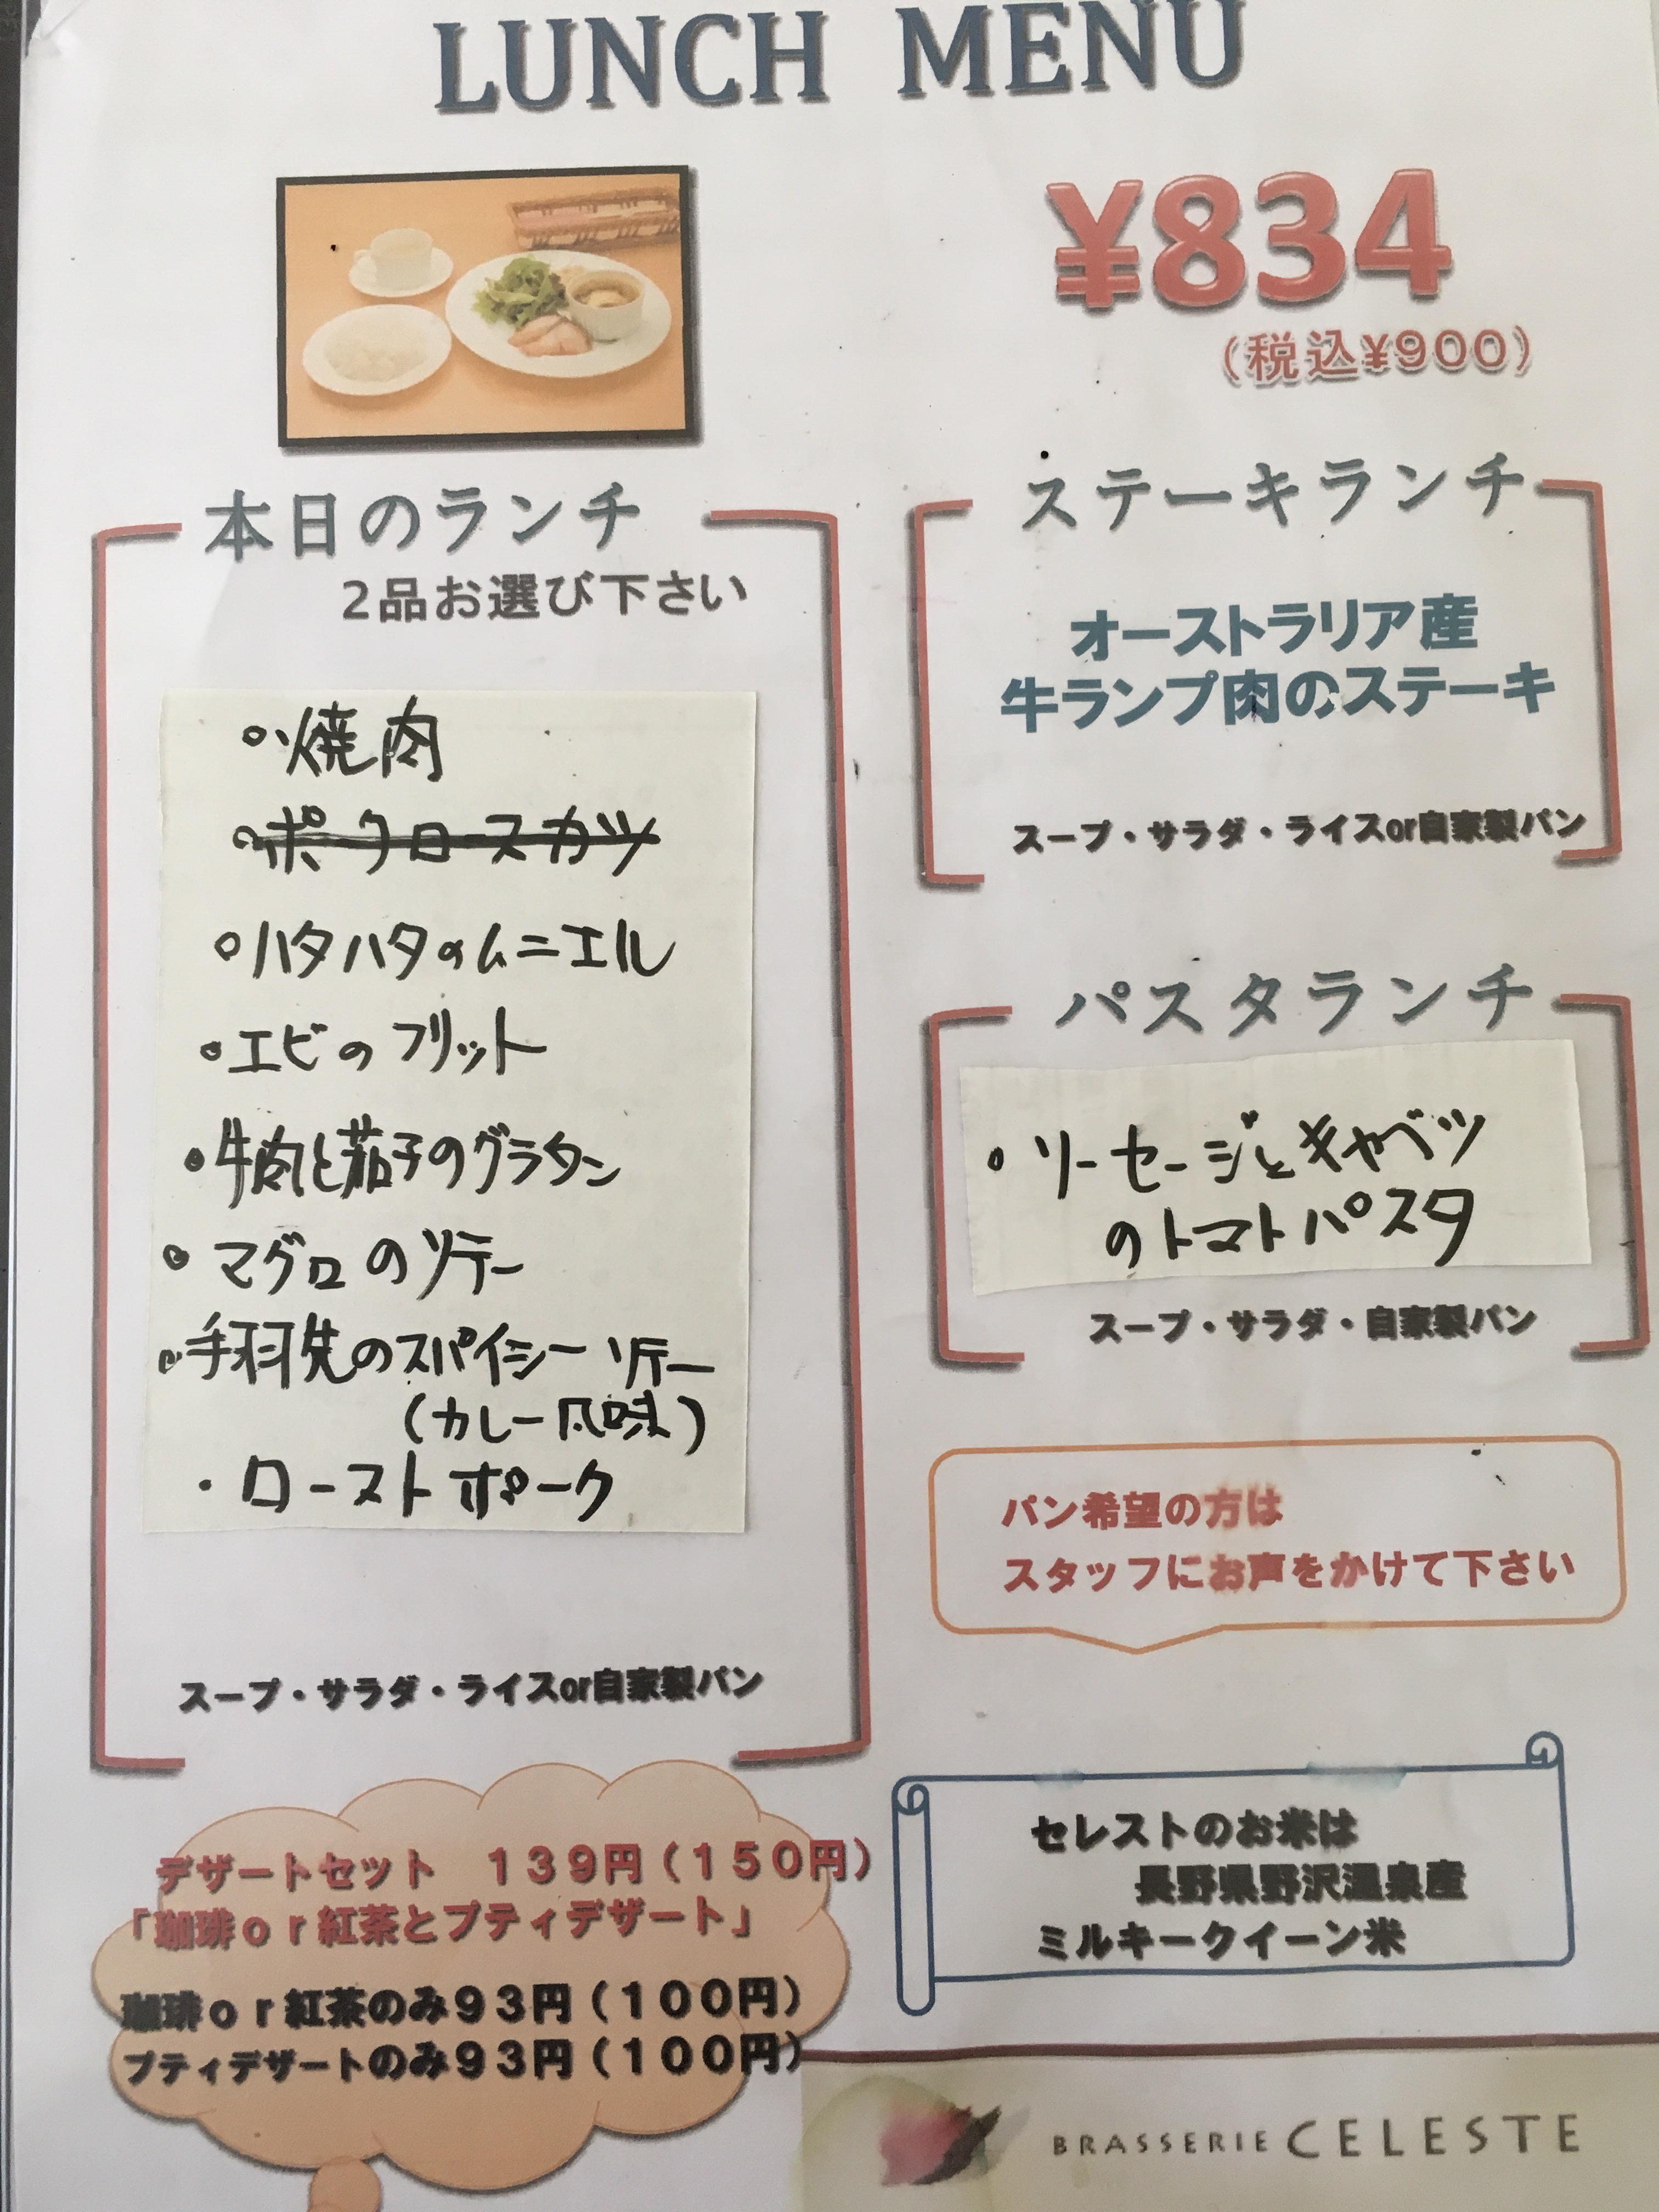 LUNCH MENU
¥834
(税込¥900)
本日のランチ
2品お選び下さい
焼肉
ポークロースカツ
ハタハタのムニエル
エビのフリット
牛肉と茄子のグラタン
マグロのソテー
手羽先のスパイシーソテー
(カレー風味)
ローストポーク
スープ・サラダ・ライスor自家製パン
ステーキランチ
オーストラリア産
牛ランプ肉のステーキ
スープ・サラダ・ライスor自家製パン
パスタランチ
ソーセージとキャベツ
のトマトパスタ
スープ・サラダ・自家製パン
パン希望の方は
スタッフにお声をかけて下さい
デザートセット 139円(150円)
「珈琲or紅茶とプティデザート」
珈琲or紅茶のみ93円(100円)
プティデザートのみ93円(100円)
セレストのお米は
長野県野沢温泉産
ミルキークイーン米
BRASSERIE CELESTE